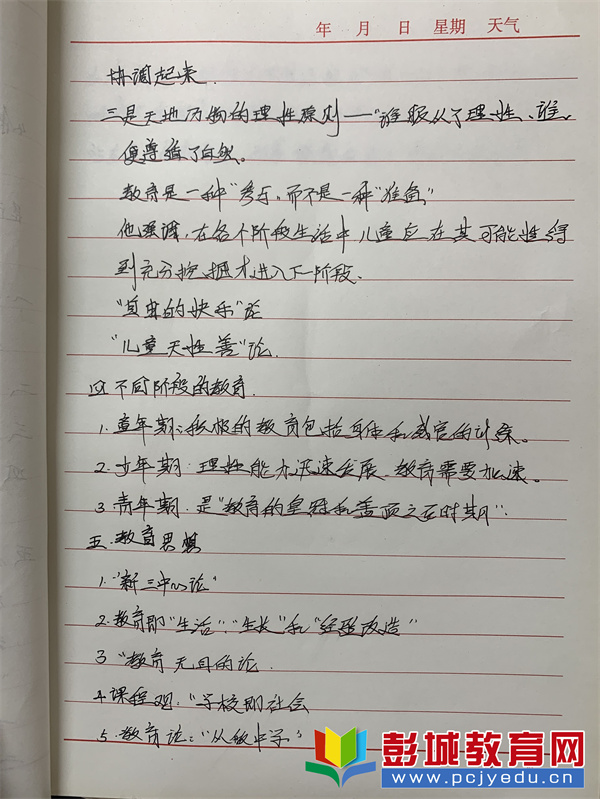 年 月 日 星期 天气
协调起来.
三是天地万物的理性原则——“谁服从了理性、谁
便遵循了自然。
教育是一种“参与,而不是一种“准备”
他强调,在各个阶段生活中儿童应在其可能性得
到充分挖掘才进入下一阶段.
“自由的快乐”论
“儿童天性善”论.
四 不同阶段的教育.
1. 童年期:积极的教育包括身体和感官的训练。
2. 少年期:理性能力迅速发展 教育需要加速。
3. 青年期:是“教育的皇冠和盖顶之石时期”.
五.教育思想
1.“新三中心论”
2.教育即“生活”.“生长”和“经验改造”
3 “教育无目的论.
4.课程观:“学校即社会
5.教育论:“从做中学”
彭城教育网
www.pcjyedu.cn